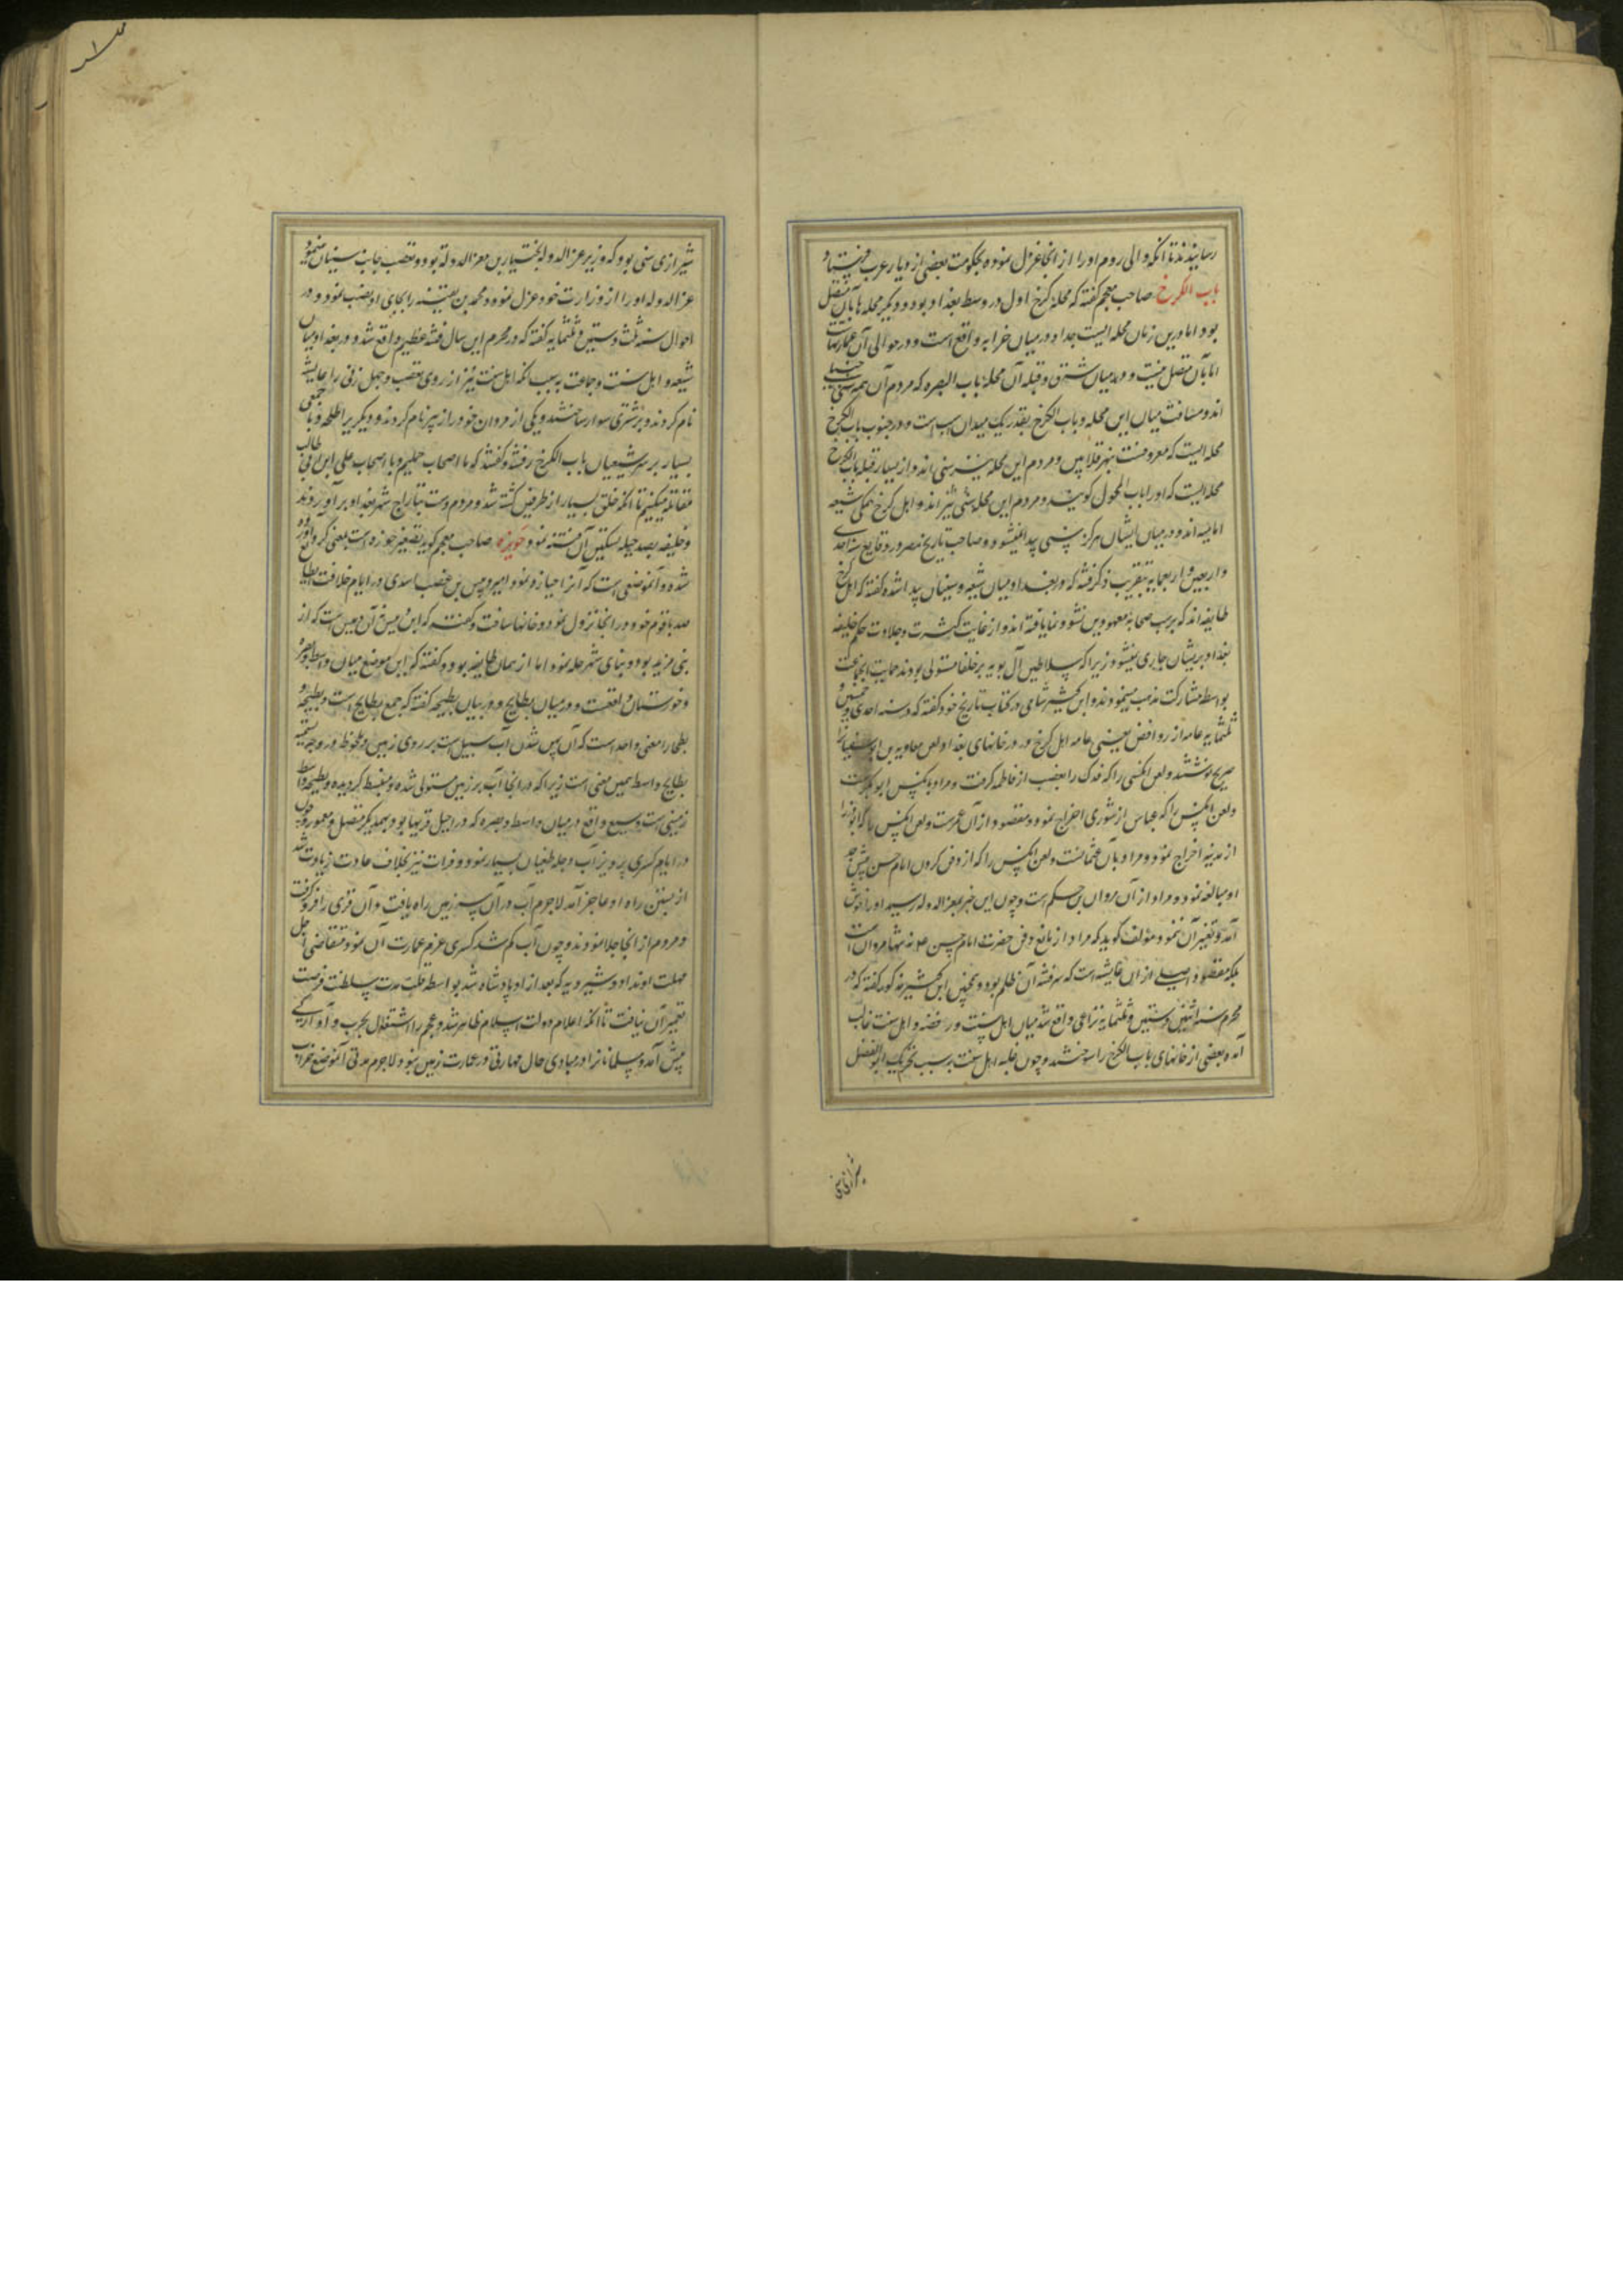 رسانیدند تا آنکه والی روم او را از آنجا عزل نموده بحکومت بعضی از دیار عرب فرستاد
باب الکرخ صاحب معجم گفته که محله کرخ اول در وسط بغداد بود و دیگر محله‌ها بآن متصل
بود اما درین زمان محله ایست جدا و در میان خرابه واقع است و در حوالی آن عمارتهاست
اما بآن متصل نیست و در میان شرق و قبله آن محله باب البصره که مردم آن همه سنی حنبلی
اند و مسافت میان این محله و باب الکرخ بقدر یک میدان اسب است و در جنوب باب الکرخ
محله ایست که معروفست بنهر قلایین و مردم این محله نیز سنی اند و از یسار قبله باب الکرخ
محله ایست که او را باب المحول گویند و مردم این محله سنی نیز اند و اهل کرخ همگی شیعه
امامیه اند و در میان ایشان هرگز سنی پیدا نمیشود و صاحب تاریخ مصر در وقایع سنه احدی
و اربعین و اربعمایه بتقریب ذکر فتنه که در بغداد میان شیعه و سنیان پیدا شده گفته که اهل کرخ
طایفه اند که بر سب صحابه معهودین نشو و نما یافته اند و از غایت کثرت و جلادت حکم خلیفه
بغداد بریشان جاری نمیشود زیرا که سلاطین آل بویه بر خلفا مستولی بودند حمایت ایجماعت
بواسطه مشارکت مذهب مینمودند و ابن کثیر شامی در کتاب تاریخ خود گفته که در سنه احدی و خمسین و
ثلثمایه عامه از روافض یعنی عامه اهل کرخ در در خانهای بغداد لعن معاویه بن ابوسفیانرا
صریح نوشتند و لعن آنکسی را که فدک را بغصب از فاطمه گرفت و مراد بآنکس ابوبکرست
و لعن آنکس را که عباس از شوری اخراج نمود و مقصود از آن عمرست و لعن آنکس را که ابوذر را
از مدینه اخراج نمود و مراد بآن عثمانست و لعن آنکس را که از دفن کردن امام حسن پیش جد
او مبالغه نمود و مراد از آن مروان بن حکم است و چون این خبر بمعزالدوله رسید او را خوش
آمد و تغییر آن ننمود و مؤلف گوید که مراد از مانع دفن حضرت امام حسن نه تنها مروان است
بلکه مقصود اصلی از آن عایشه است که سرفتنه آن ظلم بود و همچنین ابن کثیر مذکور گفته که در
محرم سنه اثنین و ستین و ثلثمایه نزاعی واقع شد میان اهل سنت و رفضه و اهل سنت غالب
آمده بعضی از خانهای باب الکرخ را سوختند و چون غلبه اهل سنت بر سبب تحریک ابوالفضل
شیرازی
شیرازی سنی بود که وزیر عزالدوله بختیار بن معزالدوله بود و تعصب جانب سنیان مینمود
عزالدوله او را از وزارت خود عزل نموده محمد بن بقیه را بجای او نصب نمود و در
احوال سنه ثلث و ستین و ثلثمایه گفته که در محرم این سال فتنه عظیم واقع شد در بغداد میان
شیعه و اهل سنت و جماعت به سبب آنکه اهل سنت نیز از روی تعصب و جهل زنی را عایشه
نام کردند و بر شتری سوار ساختند و یکی از مردان خود را زبیر نام کردند و دیگری را طلحه و با جمعی
بسیار بر سر شیعیان باب الکرخ رفتند و گفتند که ما اصحاب جملیم و با اصحاب علی ابن ابی طالب
مقاتله میکنیم تا آنکه خلق بسیار از طرفین کشته شد و مردم دست بتاراج شهر بغداد برآوردند
و خلیفه بصد حیله تسکین آن فتنه نمود حویزه صاحب معجم گوید تصغیر حوزه است بمعنی گرد آورده
شده و آنموضعی است که آنرا حیازه نمود امیر دبیس بن عضب اسدی در ایام خلافت الطایع
صد با قوم خود در آنجا نزول نمود و خانها ساخت و گفته که این دبیس نه آن دبیس است که از
بنی مزید بود و بنای شهر حله نمود اما از همان طایفه بود و گفته که این موضع میان واسط و بصره
و خوزستان واقعست و در میان بطایح و در بیان بطیحه گفته که جمع بطایح است و بطیحه و
بطحا را معنی واحد است که آن پهن شدن آب سیل است بر روی زمین و ملحوظ در وجه تسمیه
بطایح واسط همین معنی است زیرا که در آنجا آب بر زمین مستولی شده و منبسط گردیده و بطیحه واسط
زمینی است وسیع واقع در میان واسط و بصره که در اصل قریها بود بهمدیگر متصل و معمور و چون
در ایام کسری پرویز آب دجله طغیان بسیار نمود و فرات نیز بخلاف عادت زیادت شد
از بستن راه او عاجز آمد لاجرم آب در آن سرزمین راه یافت و آن قری را فروگرفت
و مردم از آنجا جلا نمودند و چون آب کم شد کسری عزم عمارت آن نمود متقاضی اجل
مهلت او نداد و شیرویه که بعد از او پادشاه شد بواسطه قلت مدت سلطنت فرصت
تعمیر آن نیافت تا آنکه اعلام دولت اسلام ظاهر شد و عجم را اشتغال بحرب و آوارگی
پیش آمد و مسلمانانرا در مبادی حال مهارتی در عمارت زمین نبود لاجرم مدتی آنموضع خراب